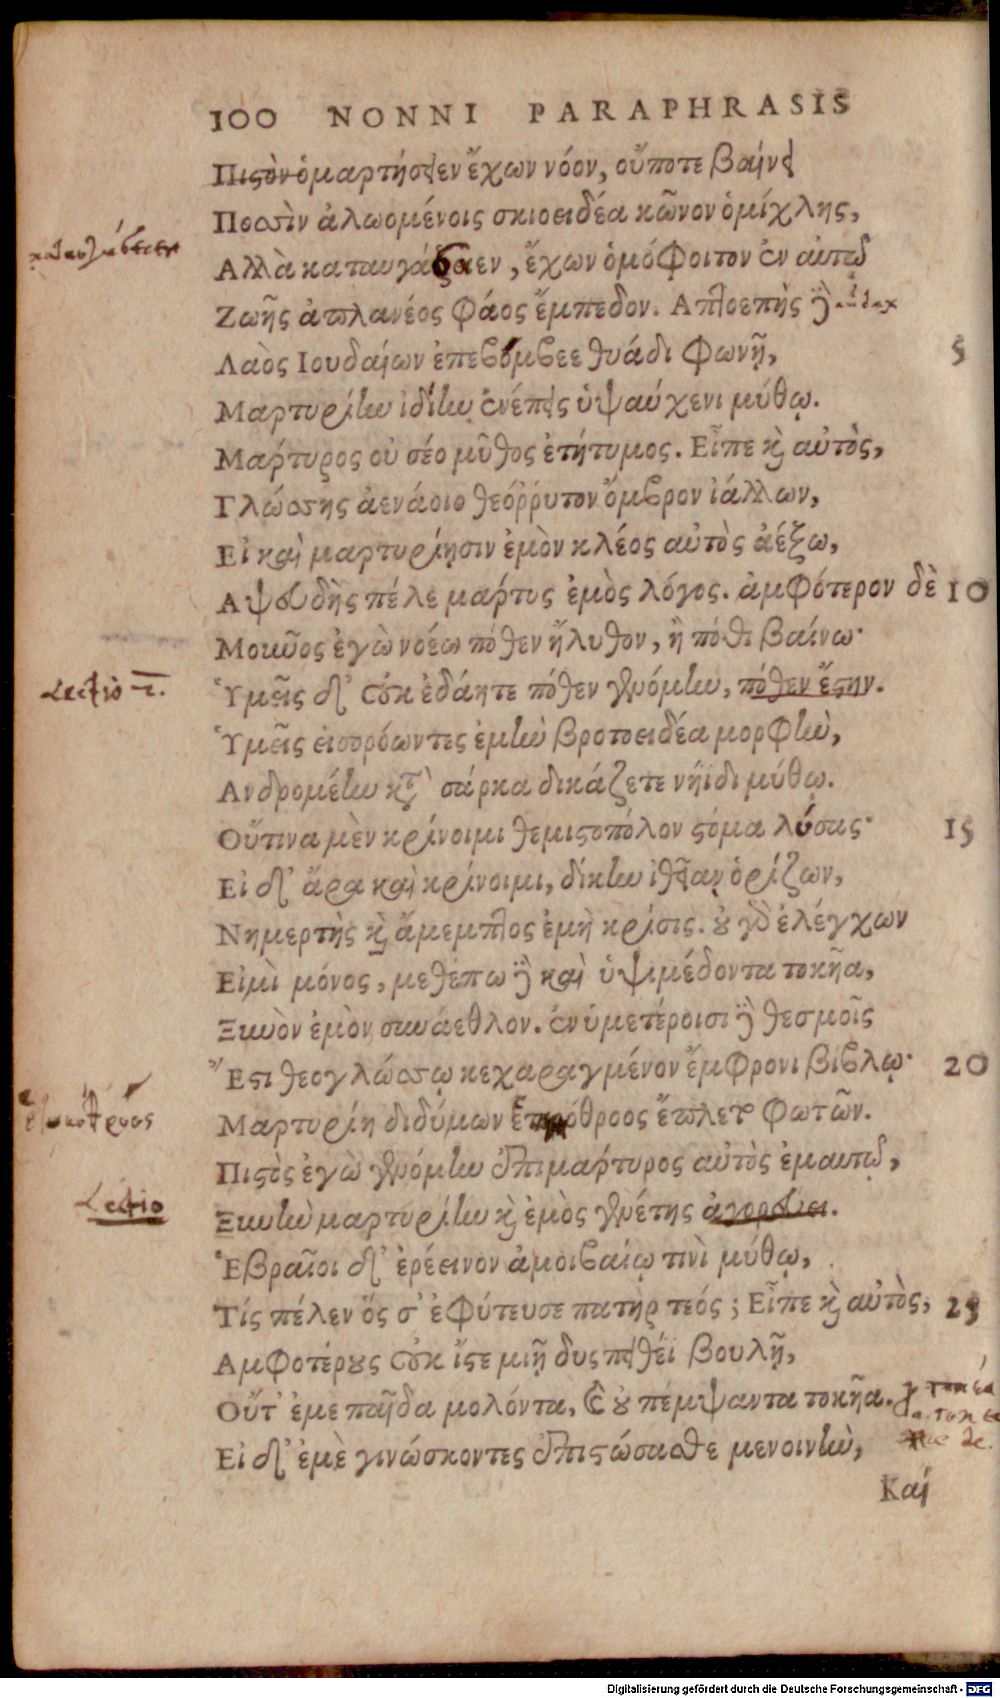 100 NONNI PARAPHRASIS
Πιςὸν ὁμαρτήσειεν ἔχων νόον, οὔποτε βαίνει
Ποσσὶν ἀλωομένοις σκιοειδέα κῶνον ὁμίχλης,
Αλλὰ καταυγάσειεν, ἔχων ὁμόφοιτον ἐν αὑτῷ
Ζωῆς ἀπλανέος φάος ἔμπεδον. Απτοεπὴς δὲ
Λαὸς Ιουδαίων ἐπεβόμβεε θυάδι φωνῇ, 5
Μαρτυρίην ἰδίην ἐνέπεις ὑψαύχενι μύθῳ.
Μάρτυρος οὐ σέο μῦθος ἐτήτυμος. Εἶπε καὶ αὐτὸς,
Γλώσσης ἀενάοιο θεόῤῥυτον ὄμβρον ἰάλλων,
Εἰ καὶ μαρτυρίῃσιν ἐμὸν κλέος αὐτὸς ἀέξω,
Αψευδὴς πέλε μάρτυς ἐμὸς λόγος. ἀμφότερον δὲ 10
Μοῦνος ἐγὼ νοέω πόθεν ἤλυθον, ἢ πόθι βαίνω·
Ὑμεῖς δ' οὐκ ἐδάητε πόθεν γενόμην, πόθεν ἔςην.
Lectio
Ὑμεῖς εἰσορόωντες ἐμὴν βροτοειδέα μορφὴν,
Ανδρομέην κατὰ σάρκα δικάζετε νήϊδι μύθῳ.
Οὔτινα μὲν κρίνοιμι θεμιςοπόλον ςόμα λύσας· 15
Εἰ δ' ἄρα καὶ κρίνοιμι, δίκην ἰθεῖαν ὁρίζων,
Νημερτὴς καὶ ἄμεμπτος ἐμὴ κρίσις. οὐ γὰρ ἐλέγχων
Εἰμὶ μόνος, μεθέπω δὲ καὶ ὑψιμέδοντα τοκῆα,
Ξυνὸν ἐμὸν συνάεθλον. ἐν ὑμετέροισι δὲ θεσμοῖς
Ἔςι θεογλώσσῳ κεχαραγμένον ἔμφρονι βίβλῳ· 20
Μαρτυρίη διδύμων ἑτερόθροος ἔπλετο φωτῶν.
Πιςὸς ἐγὼ γενόμην ἐπιμάρτυρος αὐτὸς ἐμαυτῷ,
Ξυνὴν μαρτυρίην καὶ ἐμὸς γενέτης ἀγορεύει.
Lectio
Ἑβραῖοι δ' ἐρέεινον ἀμοιβαίῳ τινὶ μύθῳ,
Τίς πέλεν ὅς σ' ἐφύτευσε πατὴρ τεός; Εἶπε καὶ αὐτὸς, 25
Αμφοτέρους οὐκ ἴςε μιῇ δυςπειθέϊ βουλῇ,
Οὔτ' ἐμὲ παῖδα μολόντα, καὶ οὐ πέμψαντα τοκῆα.
Εἰ δ' ἐμὲ γινώσκοντες ἐπιςώσασθε μενοινὴν,
Καί
Digitalisierung gefördert durch die Deutsche Forschungsgemeinschaft - DFG